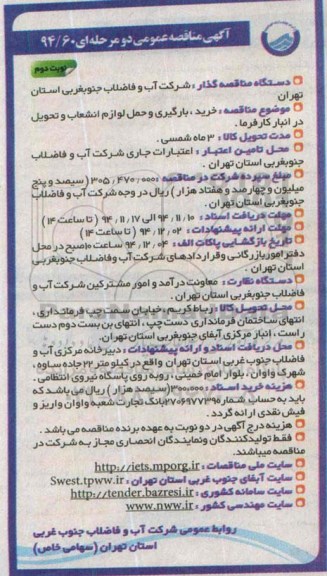 آگهی مناقصه عمومی دو مرحله ای ۹۴/۶۰
نوبت دوم
دستگاه مناقصه گذار : شرکت آب و فاضلاب جنوبغربی استان
تهران
موضوع مناقصه : خرید ، بارگیری و حمل لوازم انشعاب و تحویل
در انبار کارفرما .
مدت تحویل کالا : ۳ ماه شمسی .
محل تامین اعتبار : اعتبارات جاری شرکت آب و فاضلاب
جنوبغربی استان تهران .
مبلغ سپرده شرکت در مناقصه : ۳۰۵/۴۷۰/۰۰۰ (سیصد و پنج
میلیون و چهارصد و هفتاد هزار) ریال در وجه شرکت آب و فاضلاب
جنوبغربی استان تهران .
مهلت دریافت اسناد : ۹۴/۱۱/۱۰ الی ۹۴/۱۱/۱۷ ( تا ساعت ۱۴)
مهلت ارائه پیشنهادات : ۹۴/۱۲/۰۲ ( تا ساعت ۱۴)
تاریخ بازگشایی پاکات الف : ۹۴/۱۲/۰۴ ساعت ۱۰صبح در محل
دفتر امور بازرگانی و قراردادهای شرکت آب و فاضلاب جنوبغربی
استان تهران .
دستگاه نظارت : معاونت درآمد و امور مشترکین شرکت آب و
فاضلاب جنوبغربی استان تهران .
محل تحویل کالا : رباط کریم ، خیابان سمت چپ فرمانداری ،
انتهای ساختمان فرمانداری دست چپ ، انتهای بن بست دوم دست
راست ، انبار مرکزی آبفای جنوبغربی استان تهران.
محل دریافت اسناد و ارائه پیشنهادات : دبیرخانه مرکزی آب و
فاضلاب جنوب غربی استان تهران واقع در کیلومتر ۲۲ جاده ساوه ،
شهرک واوان ، بلوار امام خمینی ، روبه روی پاسگاه نیروی انتظامی .
هزینه خرید اسناد : ۳۰۰/۰۰۰ (سیصد هزار) ریال می باشد که
باید به حساب شماره ۲۷۰۶۹۷۷۳۹۰بانک تجارت شعبه واوان واریز و
فیش نقدی ارائه گردد .
هزینه درج آگهی در دو نوبت به عهده برنده مناقصه می باشد .
فقط تولیدکنندگان ونمایندگان انحصاری مجاز به شرکت در
مناقصه میباشند.
سایت ملی مناقصات : http://iets.mporg.ir
سایت آبفای جنوب غربی استان تهران : Swest.tpww.ir
سایت سامانه کشوری : http://tender.bazresi.ir
سایت مهندسی کشور : www.nww.ir
روابط عمومی شرکت آب و فاضلاب جنوب غربی
استان تهران (سهامی خاص)